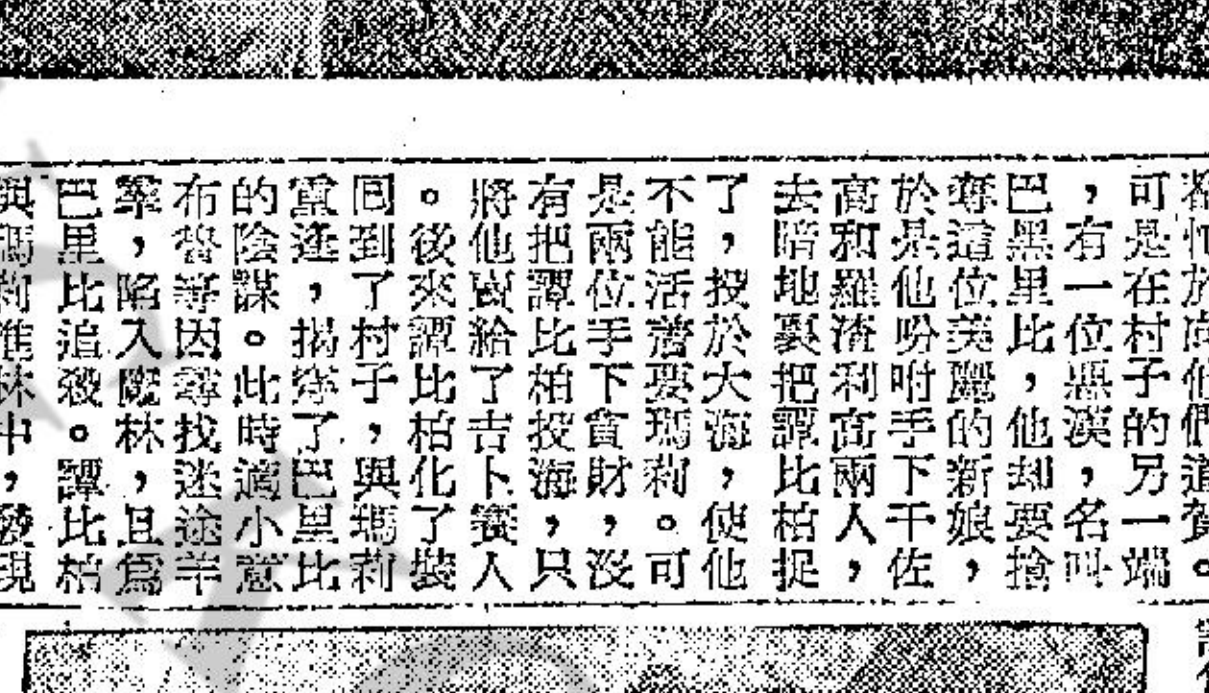 都忙於向他們道賀。
可是在村子的另一端
，有一位黑漢，名叫
巴黑里比，他却要搶
奪這位美麗的新娘，
於是他吩咐手下千佐
高和羅渣利高兩人，
去暗地裏把譚比柏捉
了，投於大海，使他
不能活著要瑪莉。可
是兩位手下貪財，沒
有把譚比柏投海，只
將他賣給了吉卜賽人
。後來譚比柏化了裝
囘到了村子，與瑪莉
重逢，揭穿了巴里比
的陰謀。此時適小意
布魯等因尋找迷途羊
羣，陷入魔林，且爲
巴里比追殺。譚比柏
與瑪莉林中，發現